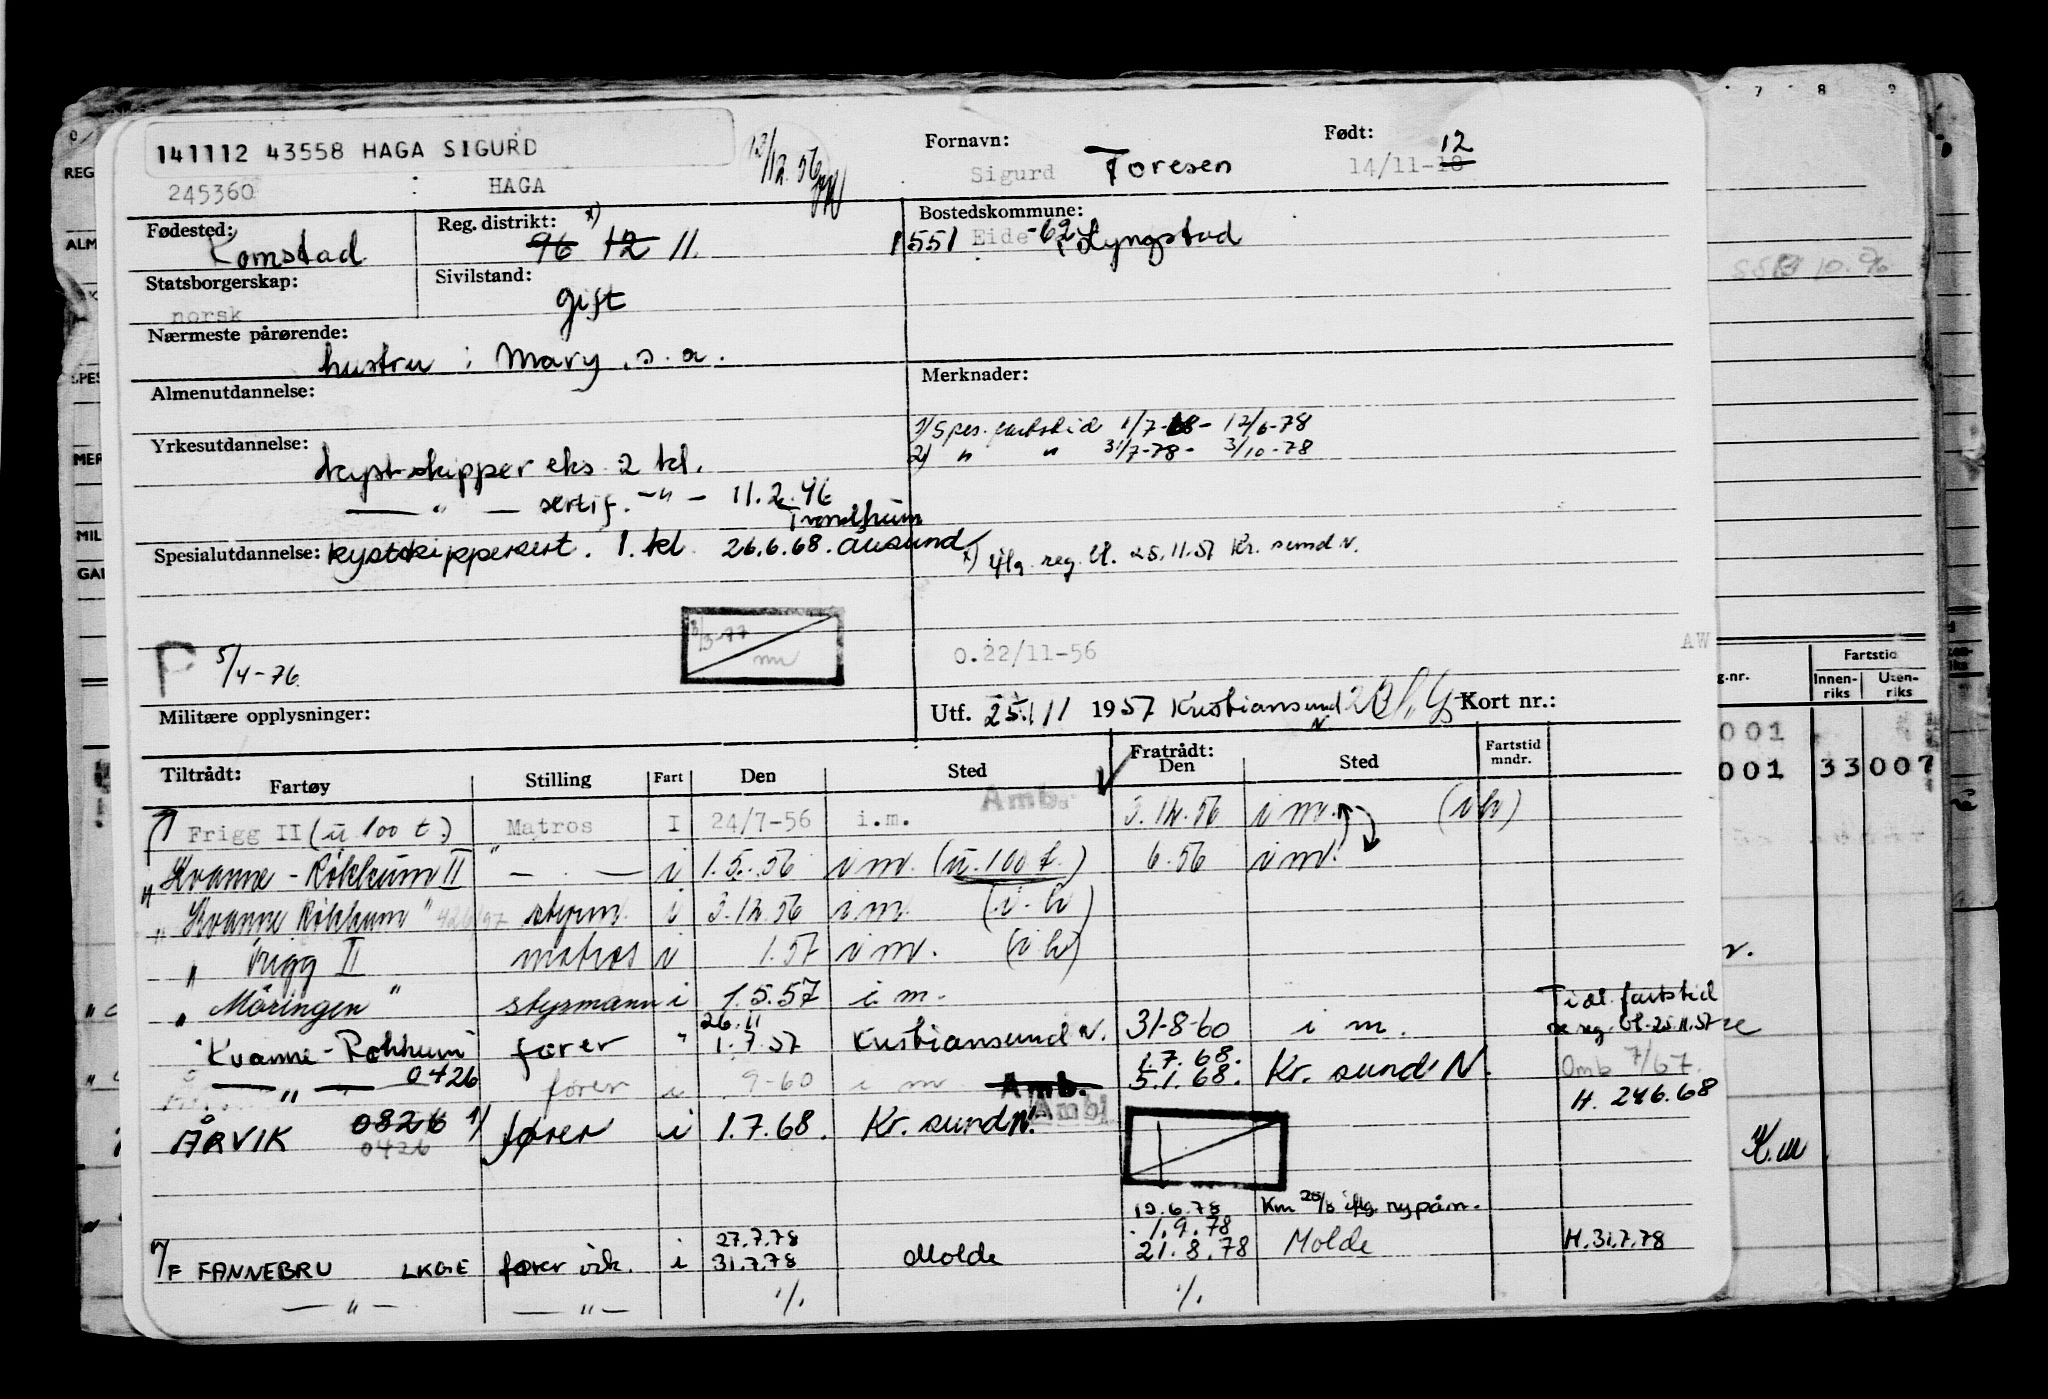 141112 43558 HAGA SIGURD
245360 : HAGA
13/12.56
Fornavn: Sigurd Toresen
Født: 14/11-18 12
Fødested: Komstad
Reg. distrikt: x) 96 12 11.
Bostedskommune: 1551 Eide -62 Lyngstad
Statsborgerskap: norsk
Sivilstand: gift
Nærmeste pårørende: hustru: Mary, s.a.
Almenutdannelse:
Merknader:
1) Spes. fartstid 1/7-68 - 12/6-78
2) " " 31/7-78 - 3/10-78
Yrkesutdannelse: kystskipper eks 2 kl.
— " — sertif. -"- 11.2.46 Trondheim
Spesialutdannelse: kystskippersert. 1. kl 26.6.68. Ålesund
x) iflg. reg. bl. 25.11.57 Kr. sund N.
P 5/4-76
3/3-77
0.22/11-56
AW
Militære opplysninger:
Utf. 25/11 1957 Kristiansund N
Kort nr.:
Tiltrådt: Fartøy Stilling Fart Den Sted Fratrådt: Den Sted Fartstid mndr.
Amb.
Frigg II (u 100 t.) Matros I 24/7-56 i.m. 3.12.56 i m. (i h)
" Kvanne - Røkkum II " — . — i 1.5.56 i m. (u. 100 t.) 6.56 i m.
" Kvanne Røkkum " 426/97 styrm. i 3.12.56 i m. (i h)
" Frigg II matros i 1.57 i m. (i h)
" Møringen " styrmann i 1.5.57 i m.
Tidl. fartstid
se reg. bl. 25.11.57
"Kvanne-Røkkum" fører " 26.11 1.7.57 Kristiansund N. 31-8-60 i m.
— " — 0426 fører i 9-60 i m Amb. 1.7.68. 5.1.68. Kr. sund N. Omb 7/67.
H. 246.68
ÅRVIK 0826 1) 0426 fører i 1.7.68. Kr. sund N. Amb.
12.6.78 Km 20/8 iflg. ny påm.
27.7.78 1.9.78
M/F FANNEBRU LKGE fører vik. i 31.7.78 Molde 21.8.78 Molde H.31.7.78
— " — — " — ./. ./.
7 8 9
REG
ALM
SPES
MER
MIL
GAR
g.nr. Fartstid
Innenriks Utenriks
001
001 33007
K.m